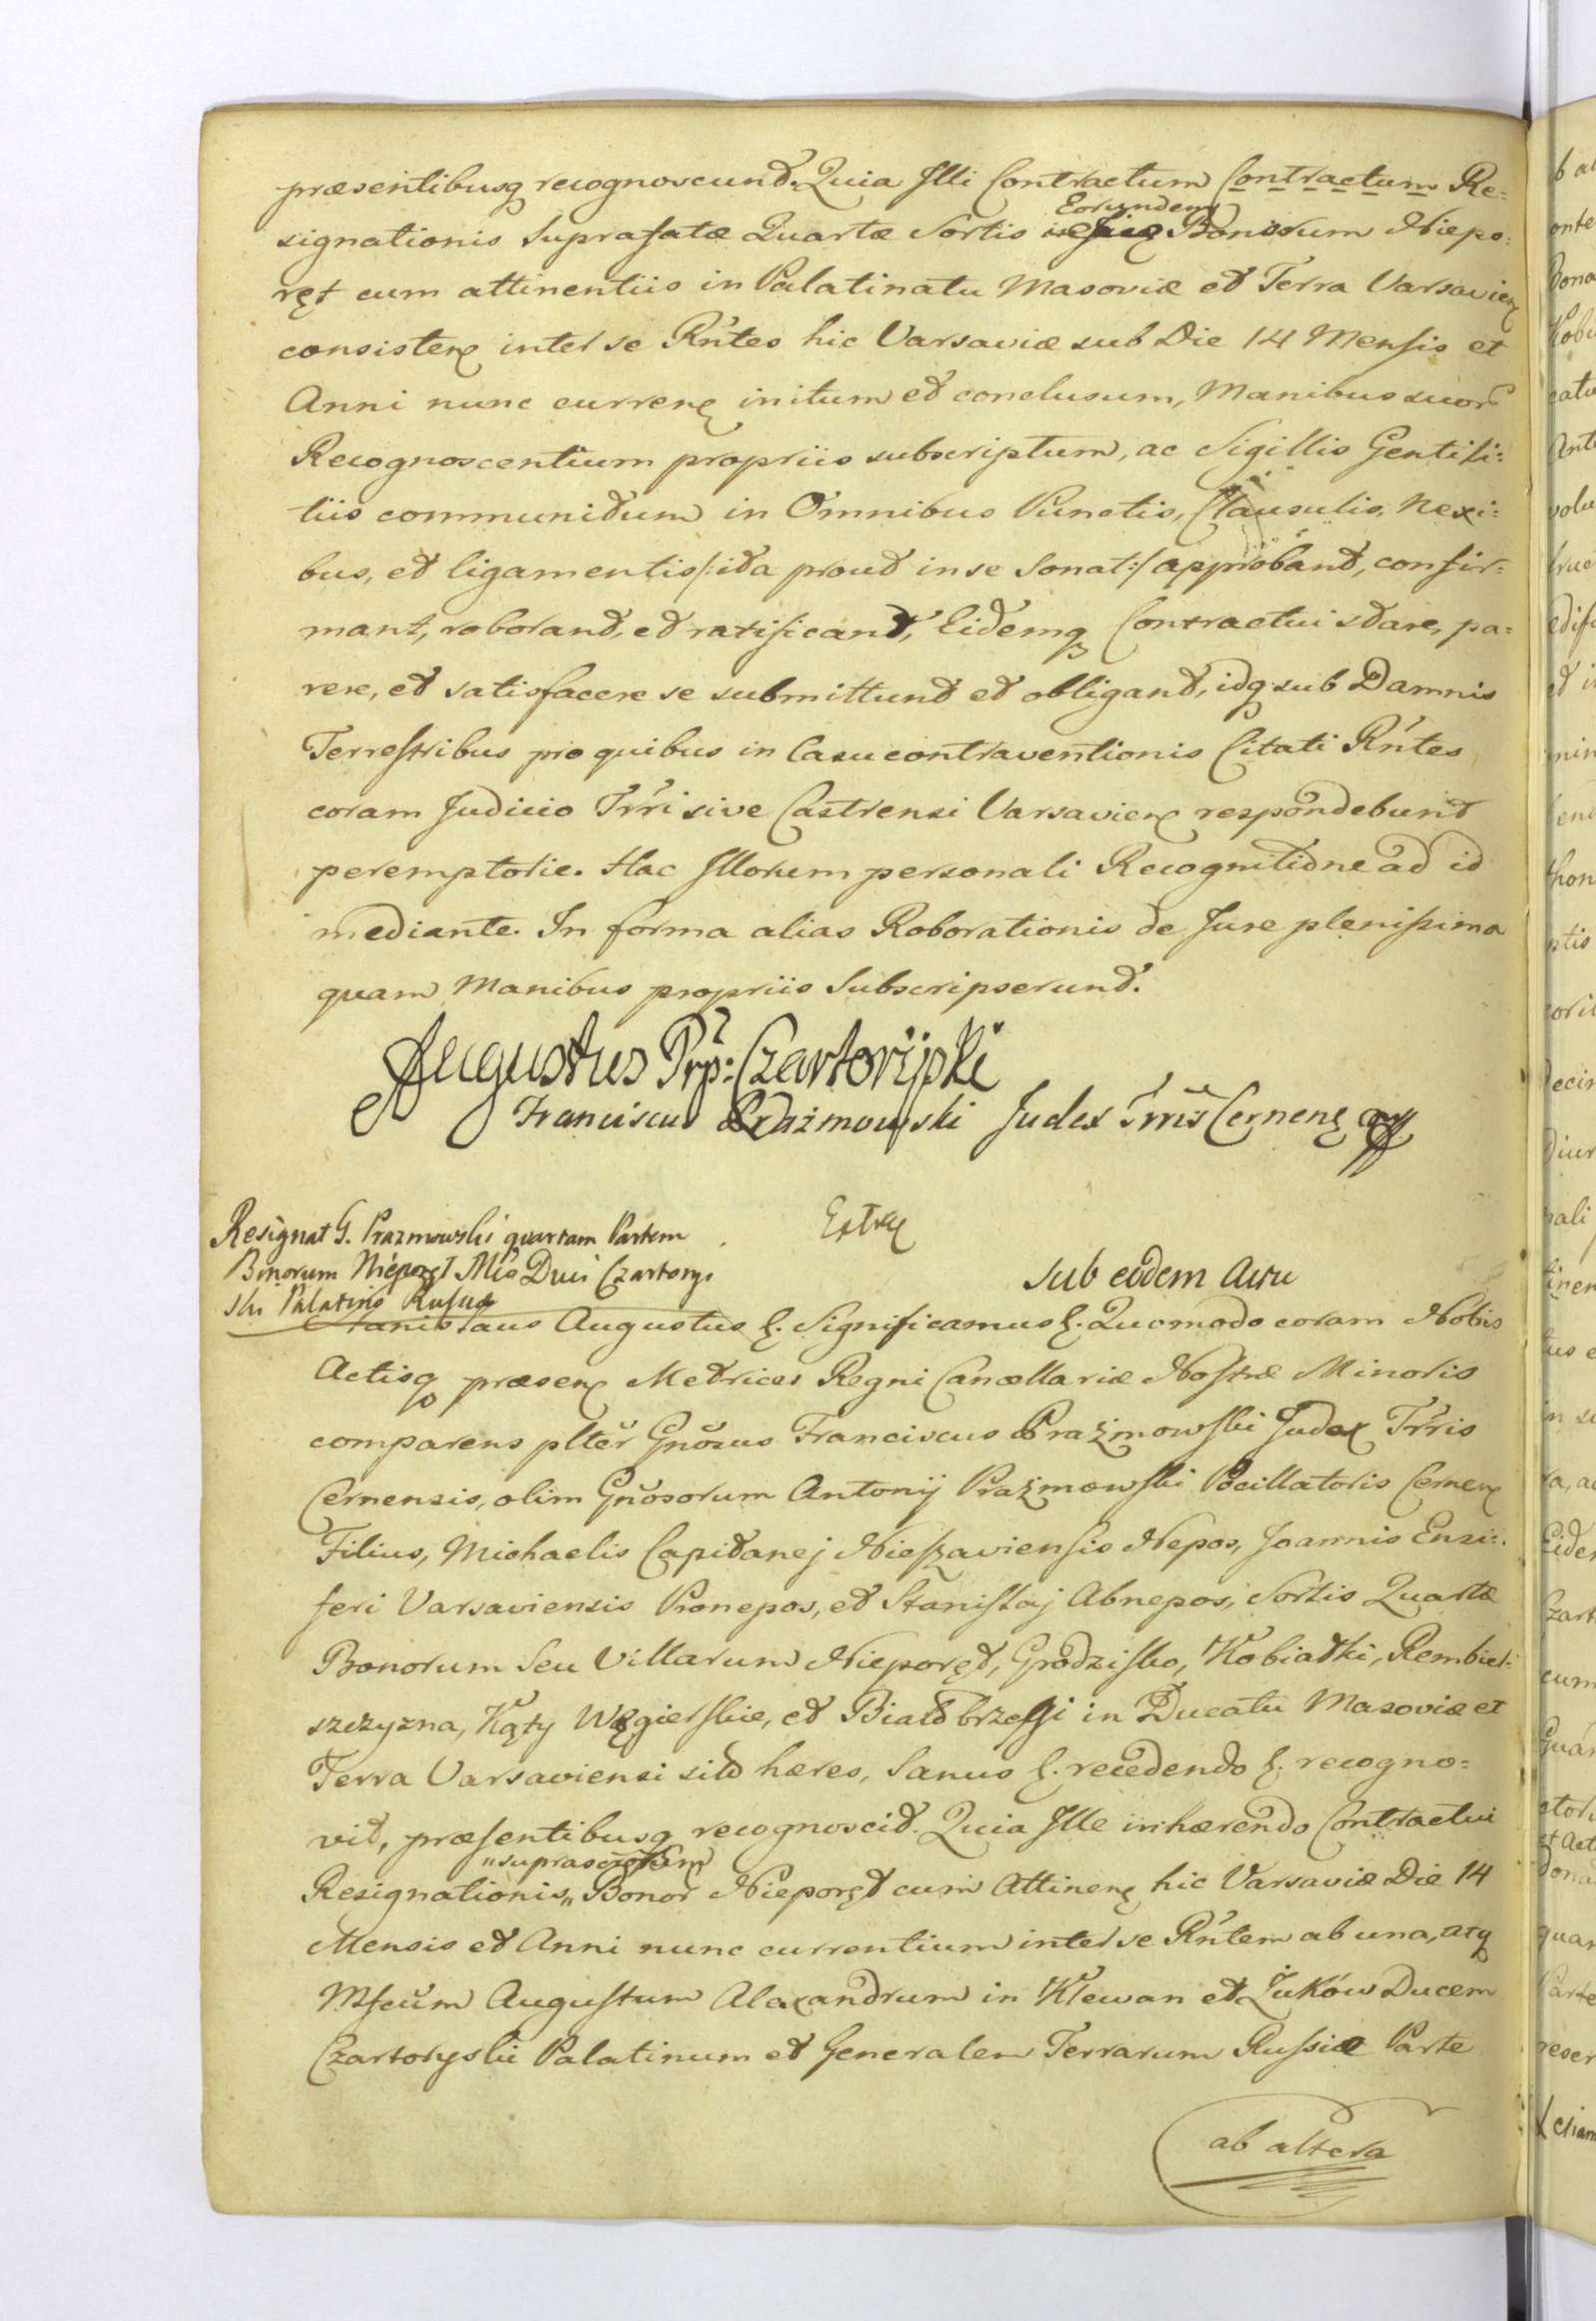 præsentibusq recognoscunt. Quia Illi Contractum Contractum Re=
signationis Suprafatæ Quartæ Sortis Eorundem Bonorum Niepo=
ręt cum attinentiis in Palatinatu Masoviæ et Terra Varsavien
consisten inter se Rńtes hic Varsaviæ sub Die 14 Mensis et
Anni nunc curren initum et conclusum, Manibus suor
Recognoscentium propriis subscriptum, ac Sigillis Gentili=
tiis communitum in Omnibus Punctis, Clausulis, Nexi=
bus, et ligamentis /:ita prout in se Sonat:/ approbant, confir=
mant, roborant, et ratificant, Eidemq Contractui stare, pa=
rere, et satisfacere se submittunt et obligant, idq sub Damnis
Terrestribus pro quibus in Casu contraventionis Citati Rńtes
coram Judicio Trri sive Castrensi Varsavien respondebunt
peremptorie. Hac Illorum personali Recognitione ad id
mediante. In forma alias Roborationis de Jure plenissima
quam Manibus propriis Subscripserunt.
Augustus Prp: Czartoryski
Franciscus Prażmowski Judex Trris Cernen
Extra
Resignat G. Prazmowski quartam Partem
Bonorum Niéporęt Mło Duci Czartory
ski Palatino Russiæ
Sub eodem Actu
Stanislaus Augustus &. Significamus &. Quomodo coram Nobis
Actisq præsen Metrices Regni Cancellariæ Nostræ Minoris
comparens plter Gnosus Franciscus Prażmowski Judex Trris
Cernensis, olim Gnosorum Antonij Prażmowski Pocillatoris Cernen
Filius, Michaelis Capitanej Nieszaviensis Nepos, Joannis Ensi=
feri Varsaviensis Pronepos, et Stanislaj Abnepos, Sortis Quartæ
Bonorum Seu Villarum Nieporęt, Grodzisko, Kobiałki, Rembiel=
szczyzna, Kąty Węgierskie, et Białobrzegi in Ducatu Masoviæ et
Terra Varsaviensi sito hæres, Sanus &. recedendo &. recogno=
vit, præsentibusq recognoscit. Quia Ille inhærendo Contractui
Resignationis „suprascriptam„ Bonor Nieporęt cum Attinen hic Varsaviæ Die 14
Mensis et Anni nunc currentium inter se Rńtem ab una, atq
Mfcum Augustum Alexandrum in Klewan et Żuków Ducem
Czartoryski Palatinum et Generalem Terrarum Russiæ Parte
ab altera